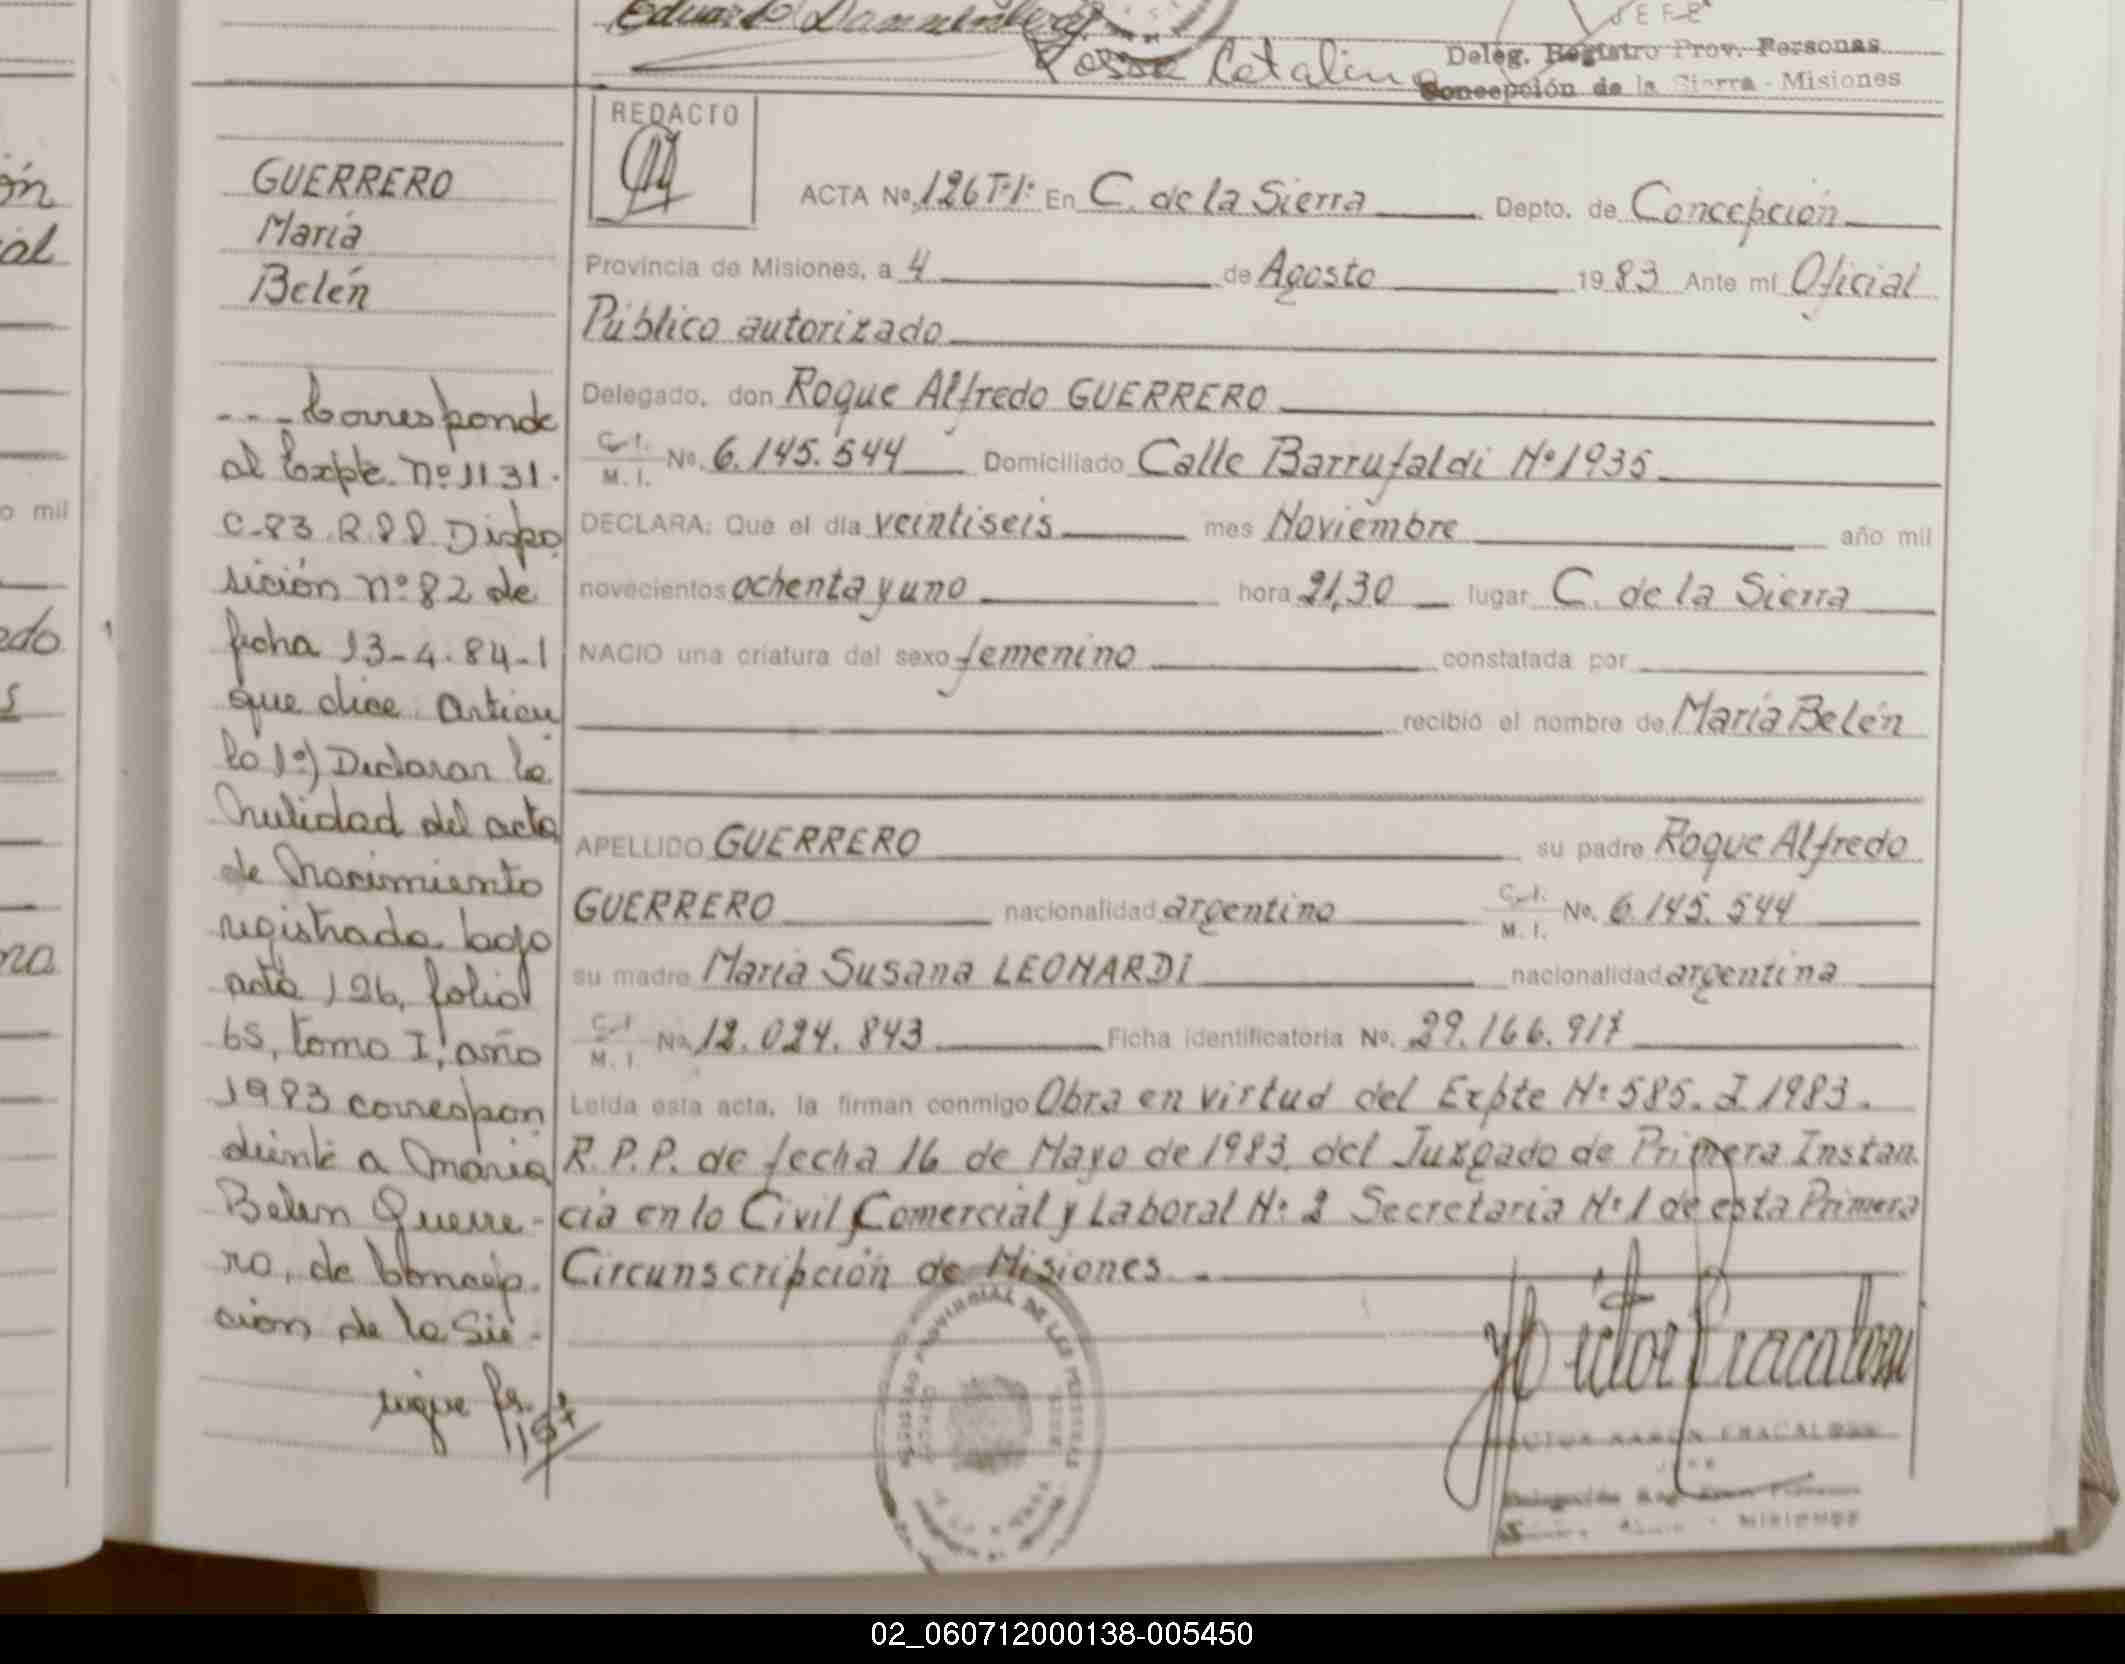 Eduardo
JEFE
Rosa Catalina
Deleg. Registro Prov. Personas
Concepción de la Sierra - Misiones
ón
ial
o mil
edo
s
no
GUERRERO
María
Belén
---Corresponde
al Expte. nº 1131.
C-83.R.P.P. Dispo
sición nº 82 de
fecha 13-4-84-1
que dice: Articu
lo 1º) Declarar la
nulidad del acta
de Nacimiento
registrada bajo
acta 126, folio
65, tomo I, año
1983 correspon
diente a María
Belen Guerre-
ro, de Concep.
ción de la Sie-
sigue fs.
157
REDACTO
ACTA Nº 126 Tº1º En C. de la Sierra Depto. de Concepción
Provincia de Misiones, a 4 de Agosto 1983 Ante mí Oficial
Público autorizado
Delegado, don Roque Alfredo GUERRERO
C.I.
M.I. Nº. 6.145.544 Domiciliado Calle Barrufaldi Nº 1935
DECLARA: Que el día veintiseis mes Noviembre año mil
novecientos ochenta y uno hora 21,30 lugar C. de la Sierra
NACIO una criatura del sexo femenino constatada por
recibió el nombre de María Belén
APELLIDO GUERRERO su padre Roque Alfredo
GUERRERO nacionalidad argentino C.I.
M.I. Nº. 6.145.544
su madre María Susana LEONARDI nacionalidad argentina
C.I.
M.I. Nº 12.024.843 Ficha identificatoria Nº. 29.166.917
Leída esta acta, la firman conmigo Obra en virtud del Expte Nº 585. I 1983.
R.P.P. de fecha 16 de Mayo de 1983. del Juzgado de Primera Instan
cia en lo Civil, Comercial y Laboral Nº 2 Secretaria Nº 1 de esta Primera
Circunscripción de Misiones.
REGISTRO PROVINCIAL DE LAS PERSONAS
Victor Fracalossi
VICTOR RAMON FRACALOSSI
JEFE
MISIONES
02_060712000138-005450